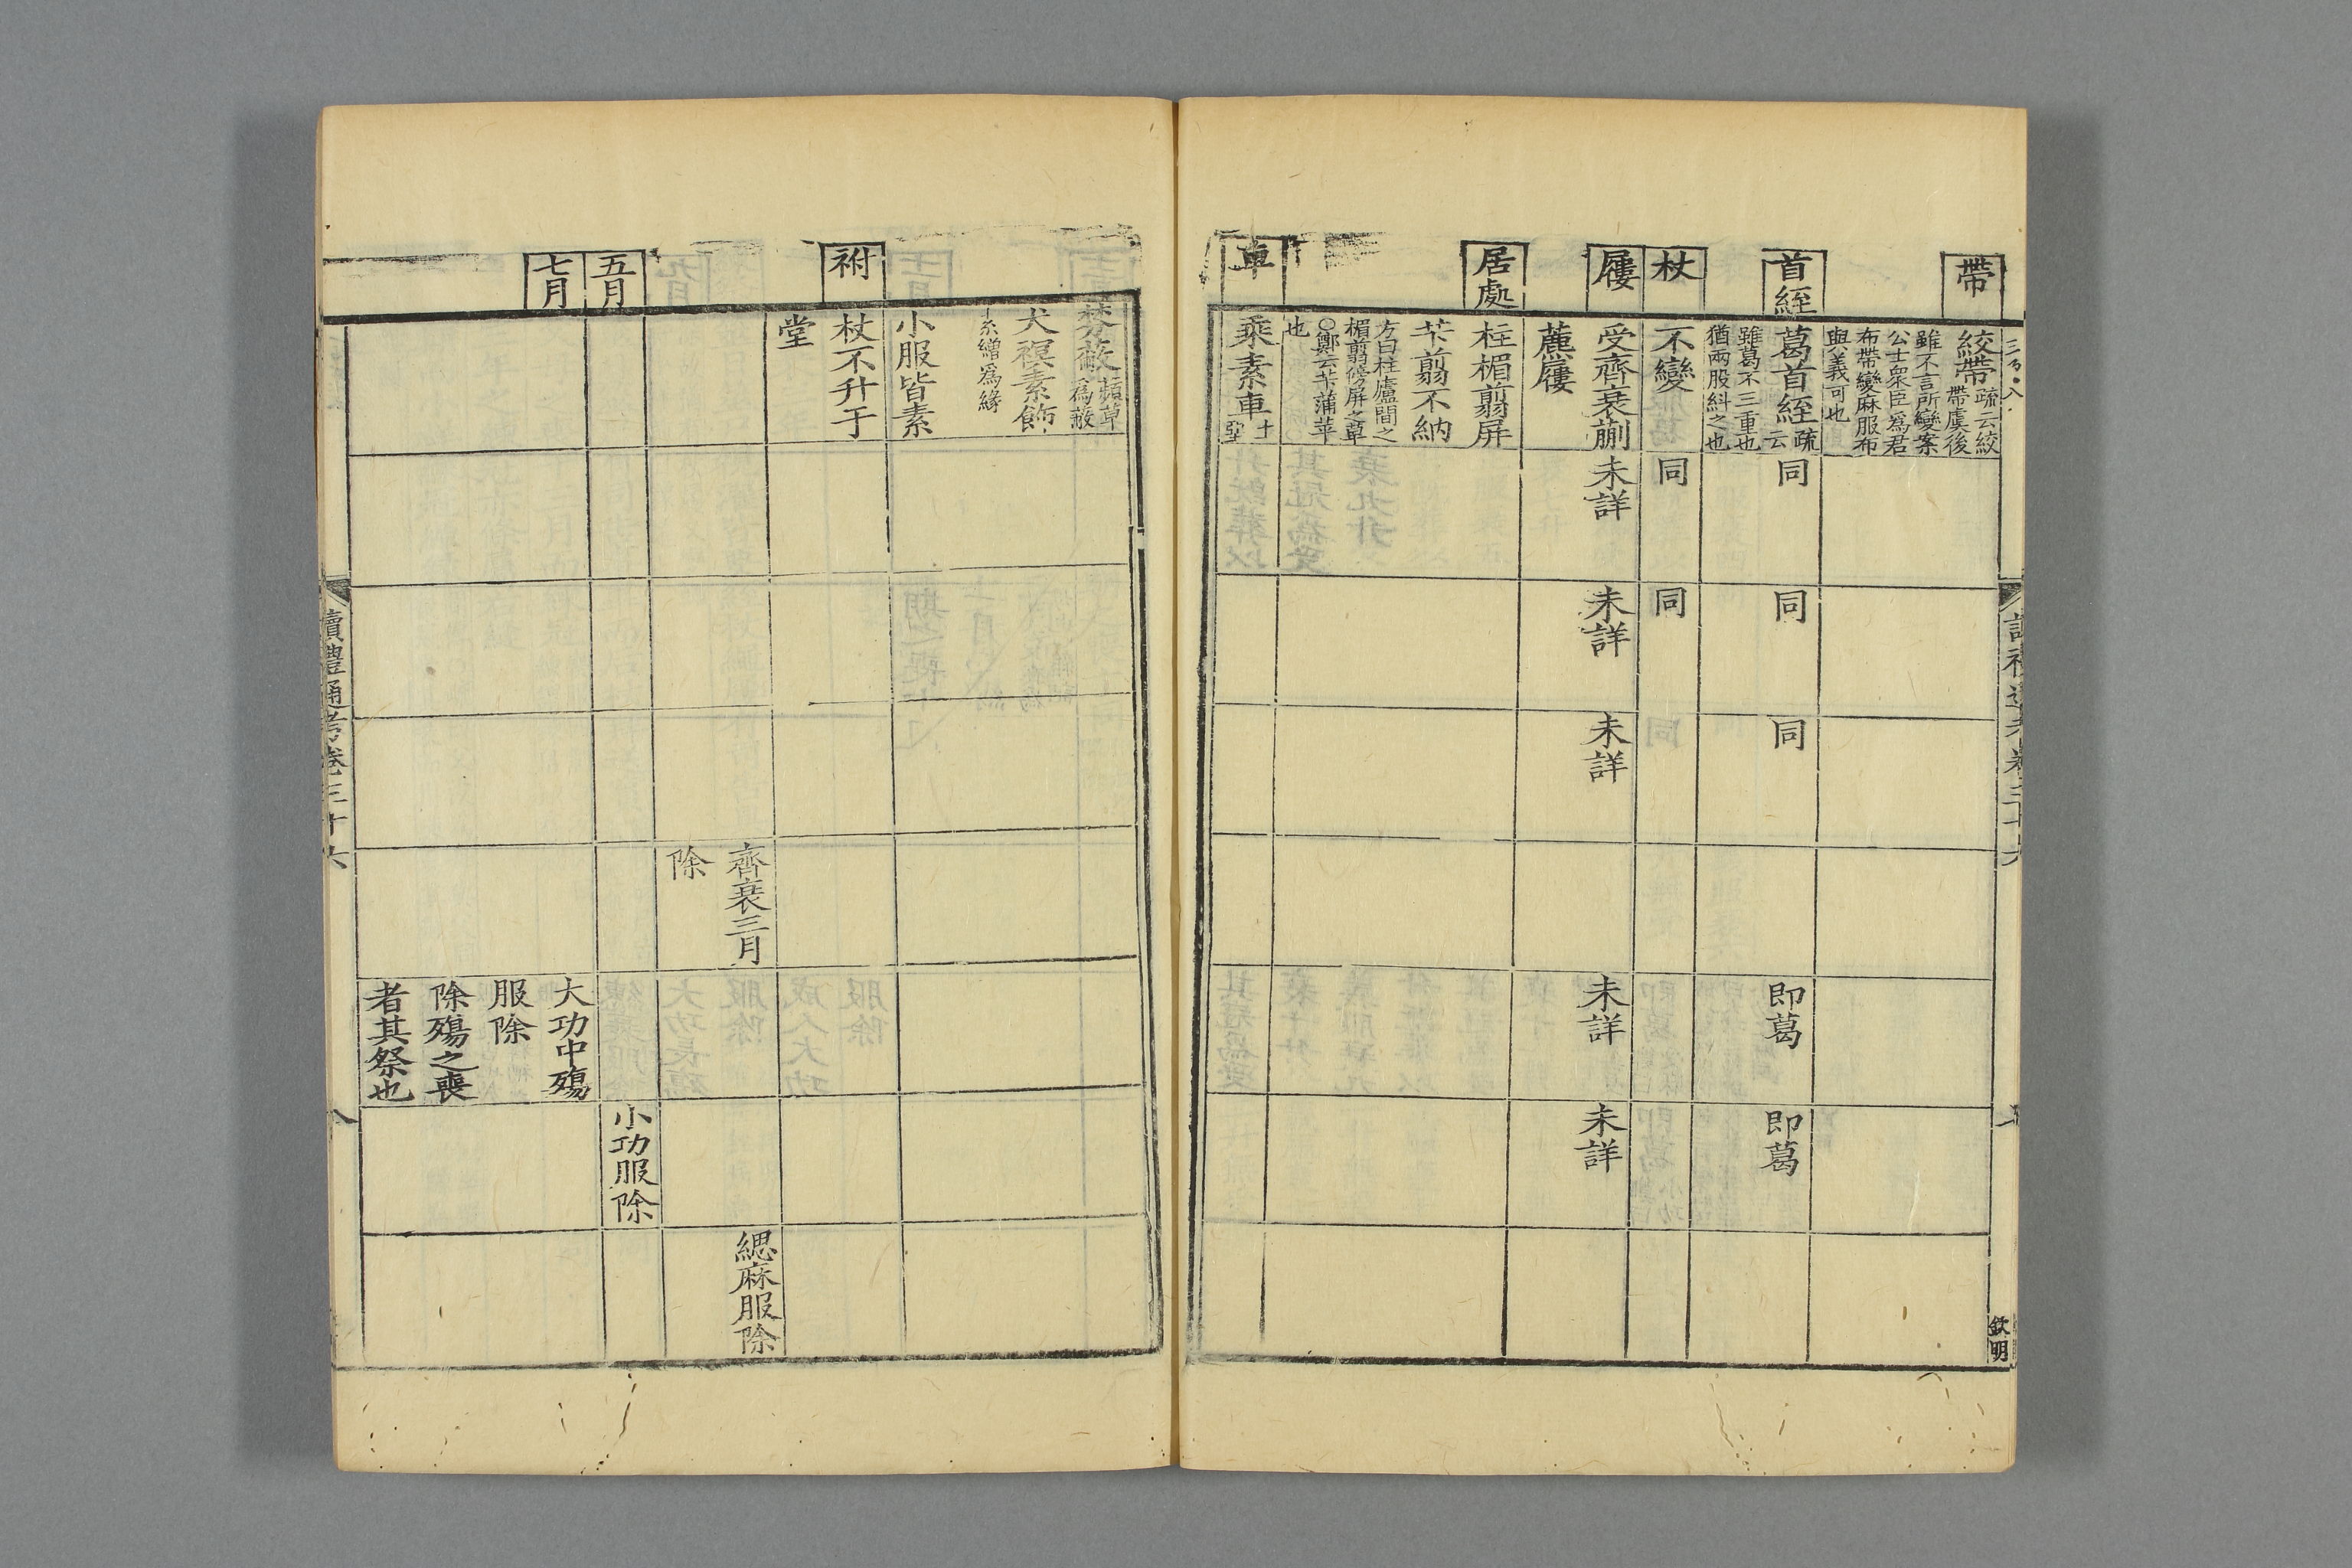 帶
絞帶疏云絞
帶虞後
雖不言所變案
公士衆臣爲君
布帶變麻服布
與義可也
首絰
葛首絰疏
云
雖葛不三重也
猶兩股糾之也
同
同
同
即葛
即葛
杖
不變
同
同
同
屨
受齊衰蒯
藨屨
未詳
未詳
未詳
未詳
未詳
居處
柱楣翦屏
苄翦不納
方曰柱廬間之
楣翦旁屏之草
○鄭云苄蒲苹
也
車
乘素車
欽明
棼蔽蘋草
爲蔽
犬䙪素飾
繒爲緣
小服皆素
祔
杖不升于
堂
齊衰三月
除
緦麻服除
五月
小功服除
七月
大功中殤
服除
除殤之喪
者其祭也
讀禮通考卷三十六
八